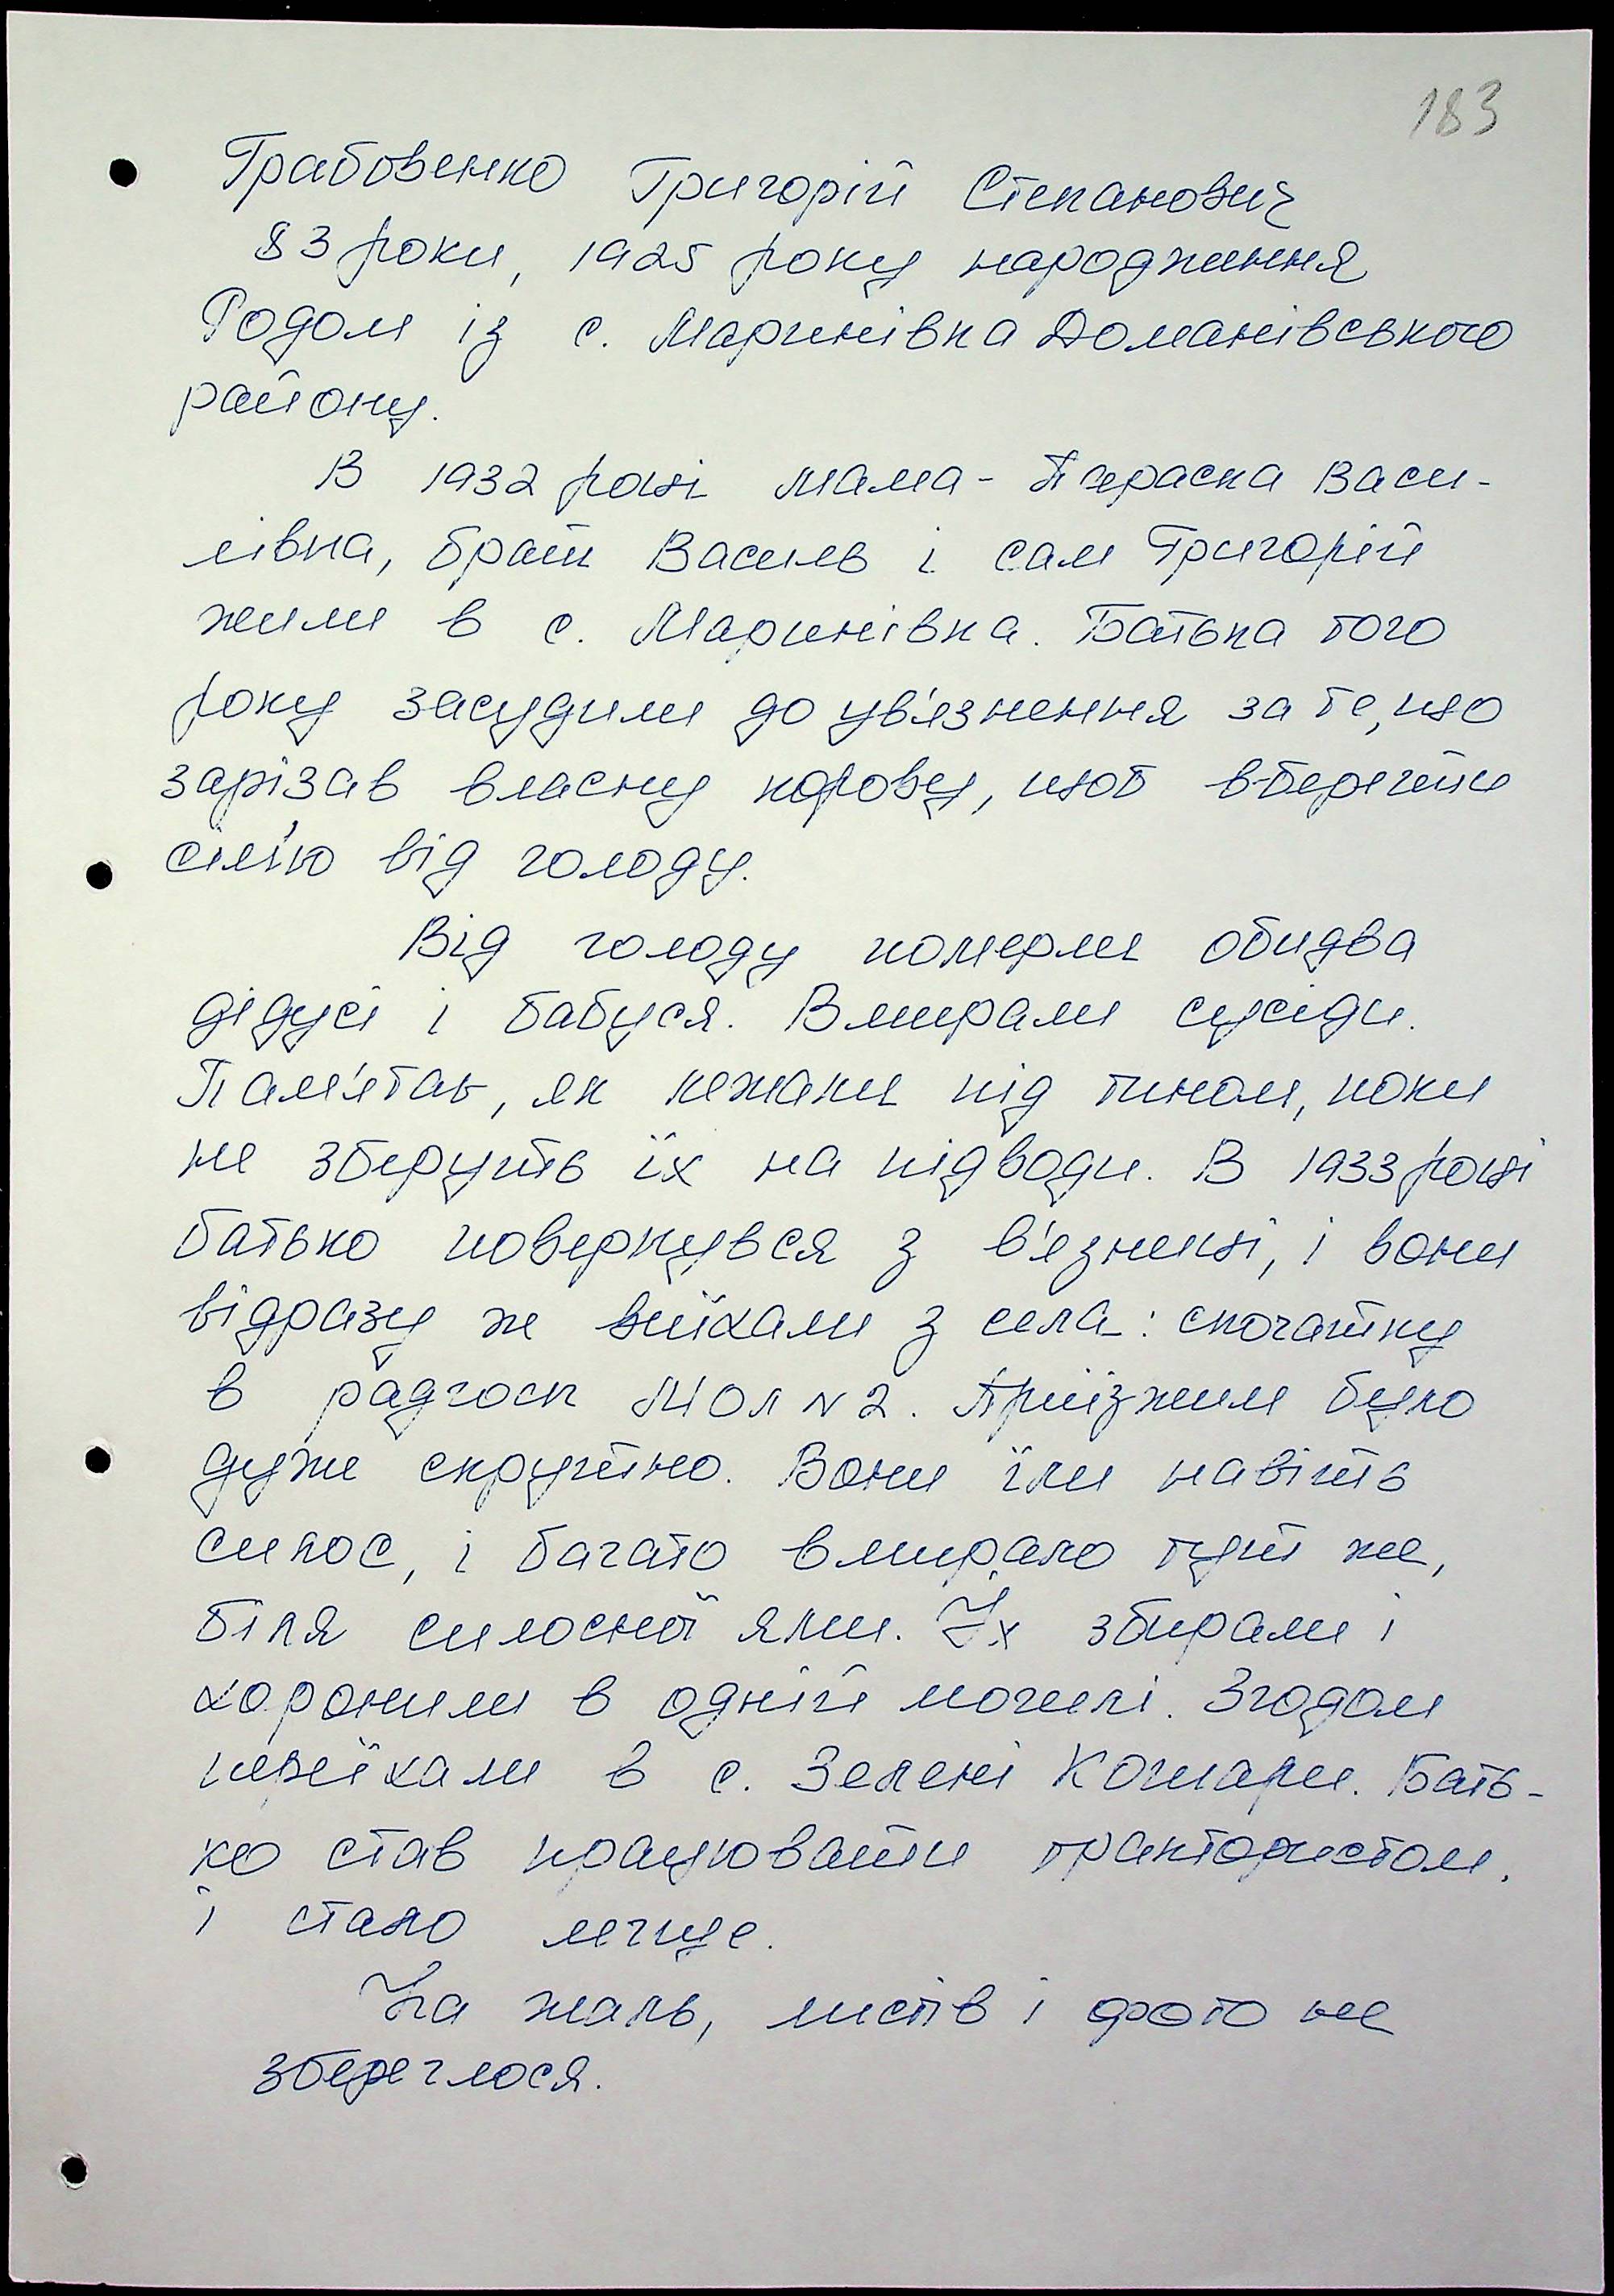 183
Грабовенко Григорій Степанович
83 роки, 1925 року народження
Родом із с. Маринівка Доманівського
району.
В 1932 році мама - Параска Васи-
лівна, брат Василь і сам Григорій
жили в с. Маринівка. Батька того
року засудили до ув'язнення за те, що
зарізав власну корову, щоб вберегти
сім'ю від голоду.
Від голоду померли обидва
дідусі і бабуся. Вмирали сусіди.
Пам'ятає, як лежали під тином, поки
не зберуть їх на підводи. В 1933 році
батько повернувся з в'язниці, і вони
відразу ж виїхали з села: спочатку
в радгосп №2. Приїзжим було
дуже скрутно. Вони їли навіть
силос, і багато вмирало тут же,
біля силосної ями. Їх збирали і
хоронили в одній могилі. Згодом
переїхали в с. Зелені Кошари. Бать-
ко став працювати трактористом,
і стало легше.
На жаль, листів і фото не
збереглося.